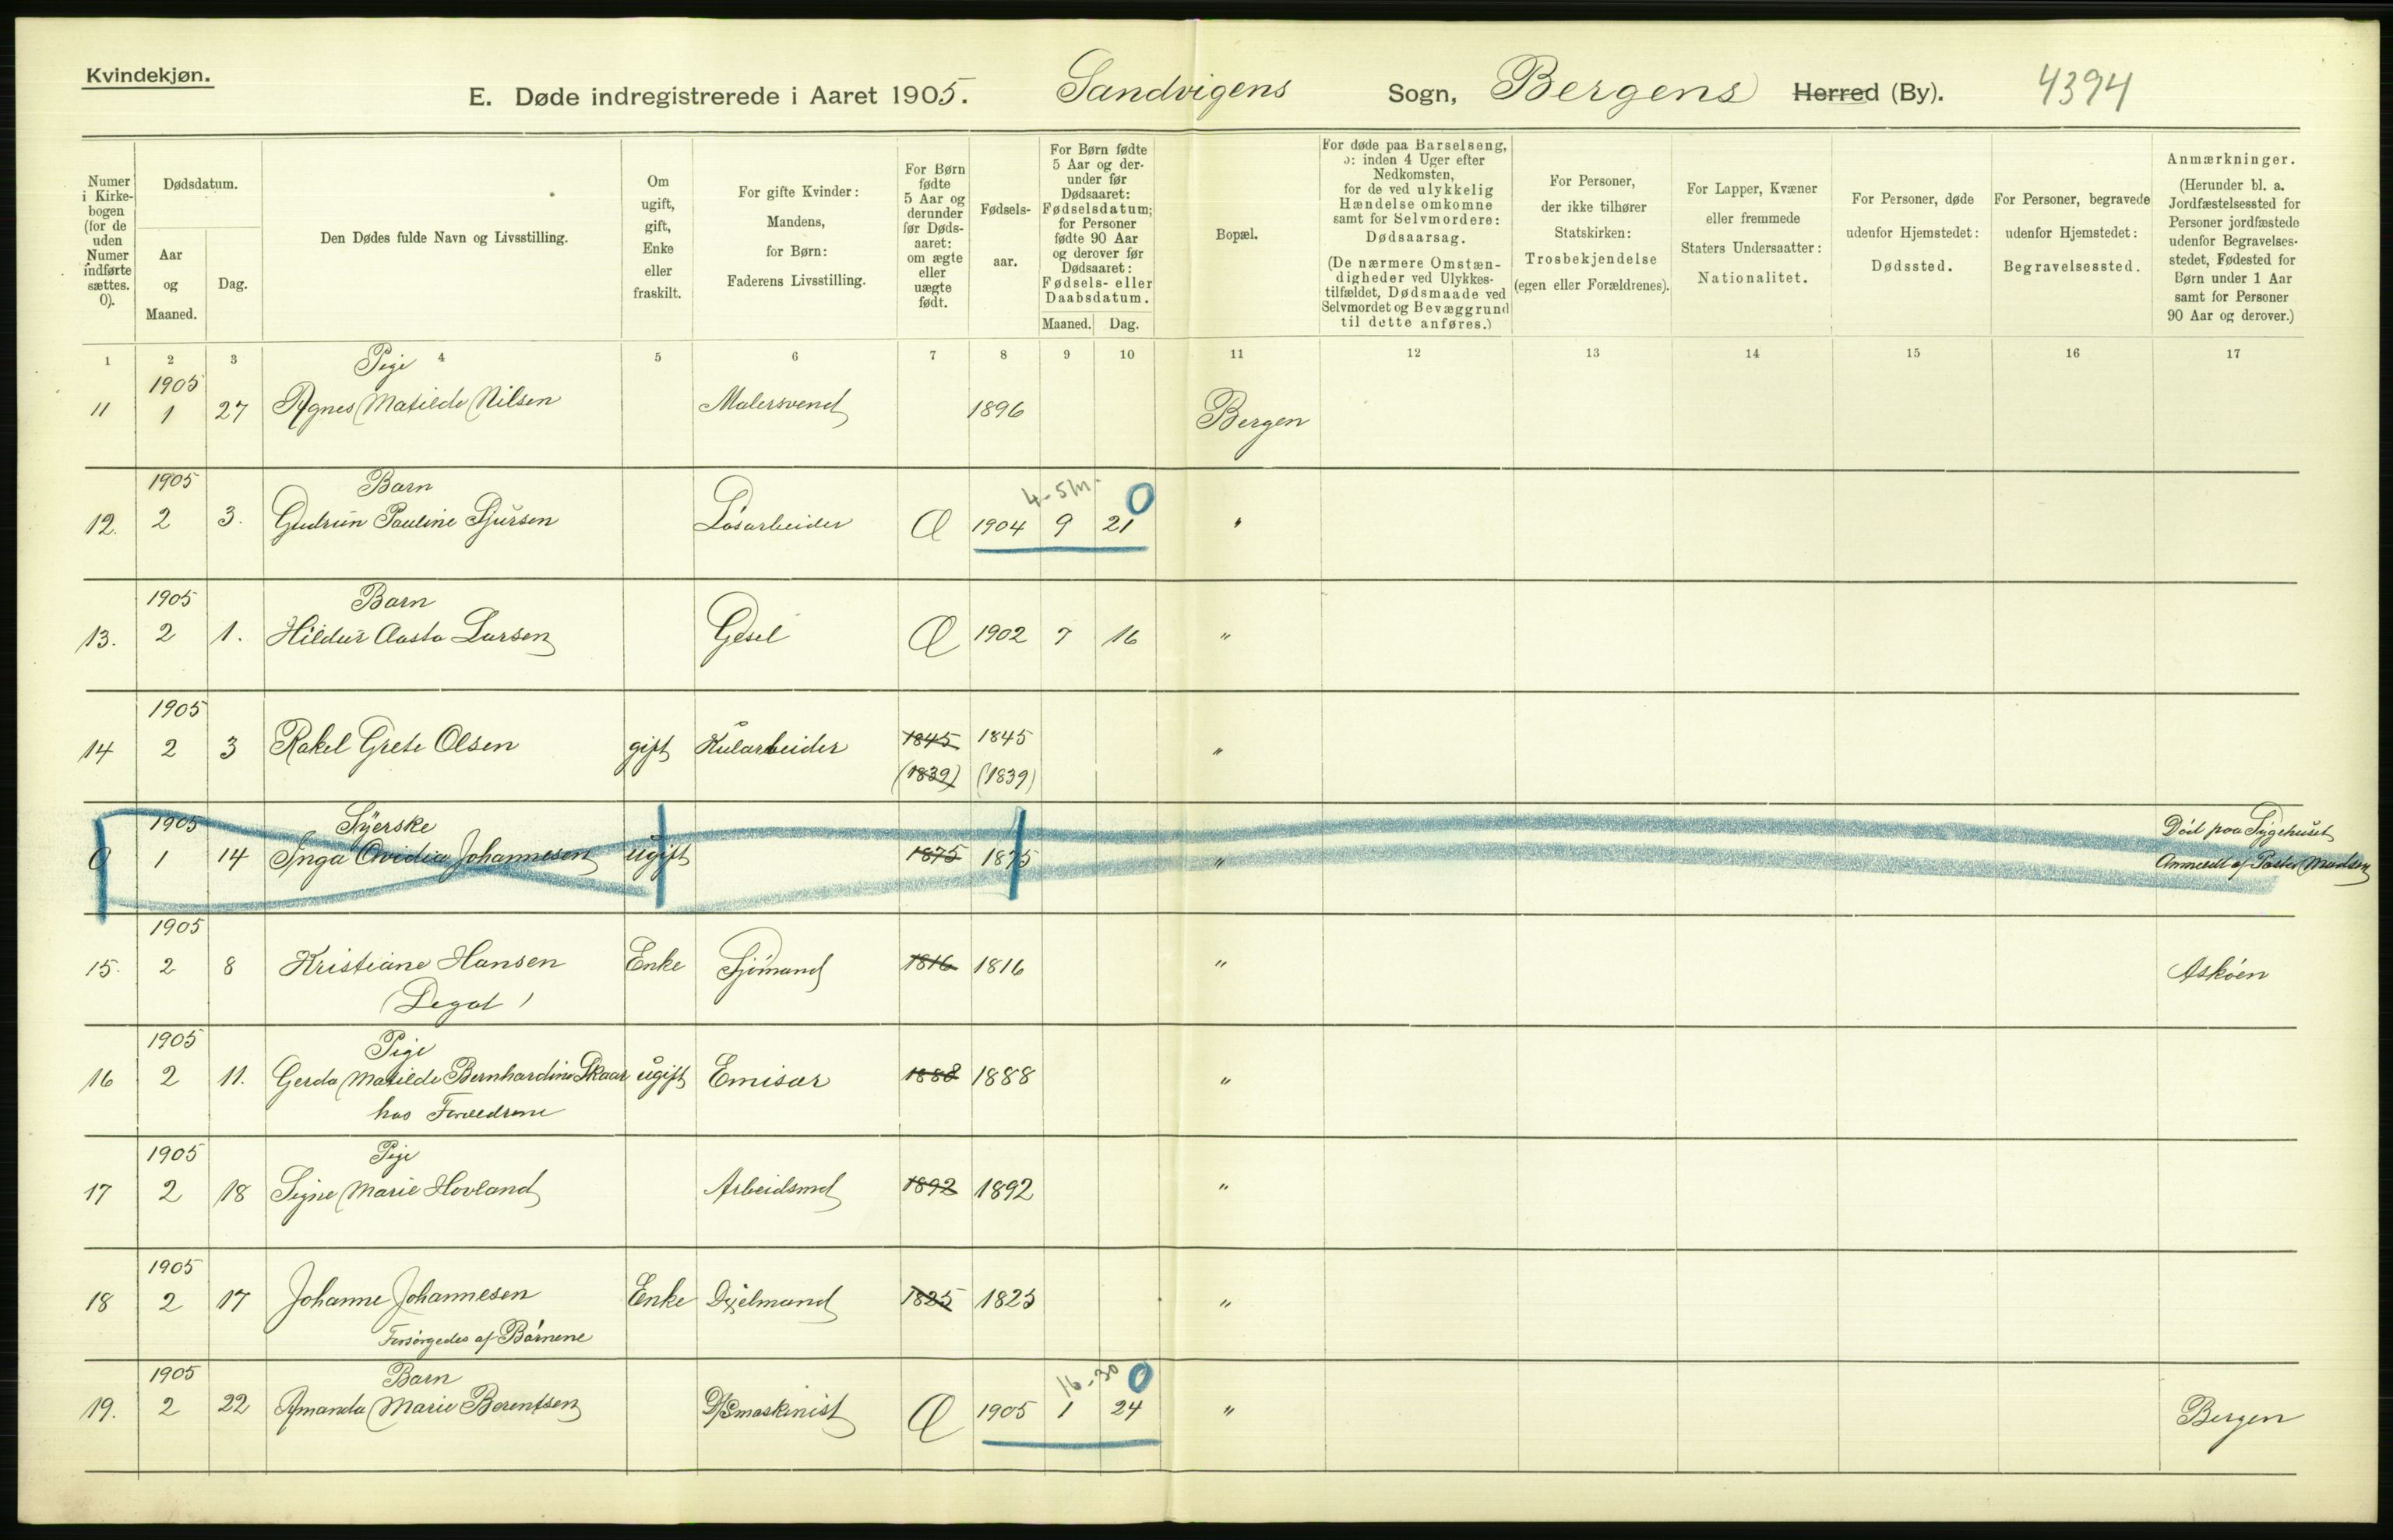 Kvindekjøn.
E. Døde indregistrerede i Aaret 1905. Sandvigens Sogn, Bergens Herred (By). 4394
Numer i Kirke-bogen (for de uden Numer indførte sættes. 0).
Dødsdatum.
Aar og Maaned.
Dag.
Den Dødes fulde Navn og Livsstilling.
Om ugift, gift, Enke eller fraskilt.
For gifte Kvinder: Mandens, for Børn: Faderens Livsstilling.
For Børn fødte 5 Aar og derunder før Døds-aaret: om ægte eller uægte født.
Fødsels-aar.
For Børn fødte 5 Aar og der-under før Dødsaaret: Fødselsdatum; for Personer fødte 90 Aar og derover før Dødsaaret: Fødsels- eller Daabsdatum.
Maaned. Dag.
Bopæl.
For døde paa Barselseng, ɔ: inden 4 Uger efter Nedkomsten, for de ved ulykkelig Hændelse omkomne samt for Selvmordere: Dødsaarsag. (De nærmere Omstæn-digheder ved Ulykkes-tilfældet, Dødsmaade ved Selvmordet og Bevæggrund til dette anføres.)
For Personer, der ikke tilhører Statskirken: Trosbekjendelse (egen eller Forældrenes).
For Lapper, Kvæner eller fremmede Staters Undersaatter: Nationalitet.
For Personer, døde udenfor Hjemstedet: Dødssted.
For Personer, begravede udenfor Hjemstedet: Begravelsessted.
Anmærkninger. (Herunder bl. a. Jordfæstelsessted for Personer jordfæstede udenfor Begravelses-stedet, Fødested for Børn under 1 Aar samt for Personer 90 Aar og derover.)
1 2 3 4 5 6 7 8 9 10 11 12 13 14 15 16 17
1905 Pige
11 1 27 Agnes Matilde Nilsen Malersvend 1896 Bergen
1905 Barn 4-5m. 0
12. 2 3. Gudrun Pauline Sjursen Løsarbeider Æ 1904 9 21 "
1905 Barn
13. 2 1. Hildur Aasta Larsen Gesel Æ 1902 7 16 "
1905
14 2 3 Rakel Grete Olsen gift Kularbeider 1845 1845 "
(1839) (1839)
1905 Syerske Död paa Sygehuset
0 1 14 Inga Ovidia Johannesen ugift 1875 1875 " Anmeldt af Pastor Madsen
1905
15. 2 8 Kristiane Hansen Enke Sjömand 1816 1816 " Asköen
(Degat)
1905 Pige
16 2 11. Gerda Matilde Bernhardine Skaar ugift Emisær 1888 1888 "
hos Forældrene
1905 Pige
17 2 18 Signe Marie Hovland Arbeidsmd 1892 1892 "
1905
18 2 17 Johanne Johannesen Enke 1825 1825 "
Forsörgedes af Börnene
1905 Barn 16-30 0
19. 2 22 Amanda Marie Berentsen D/Smaskinist Æ 1905 1 24 " Bergen